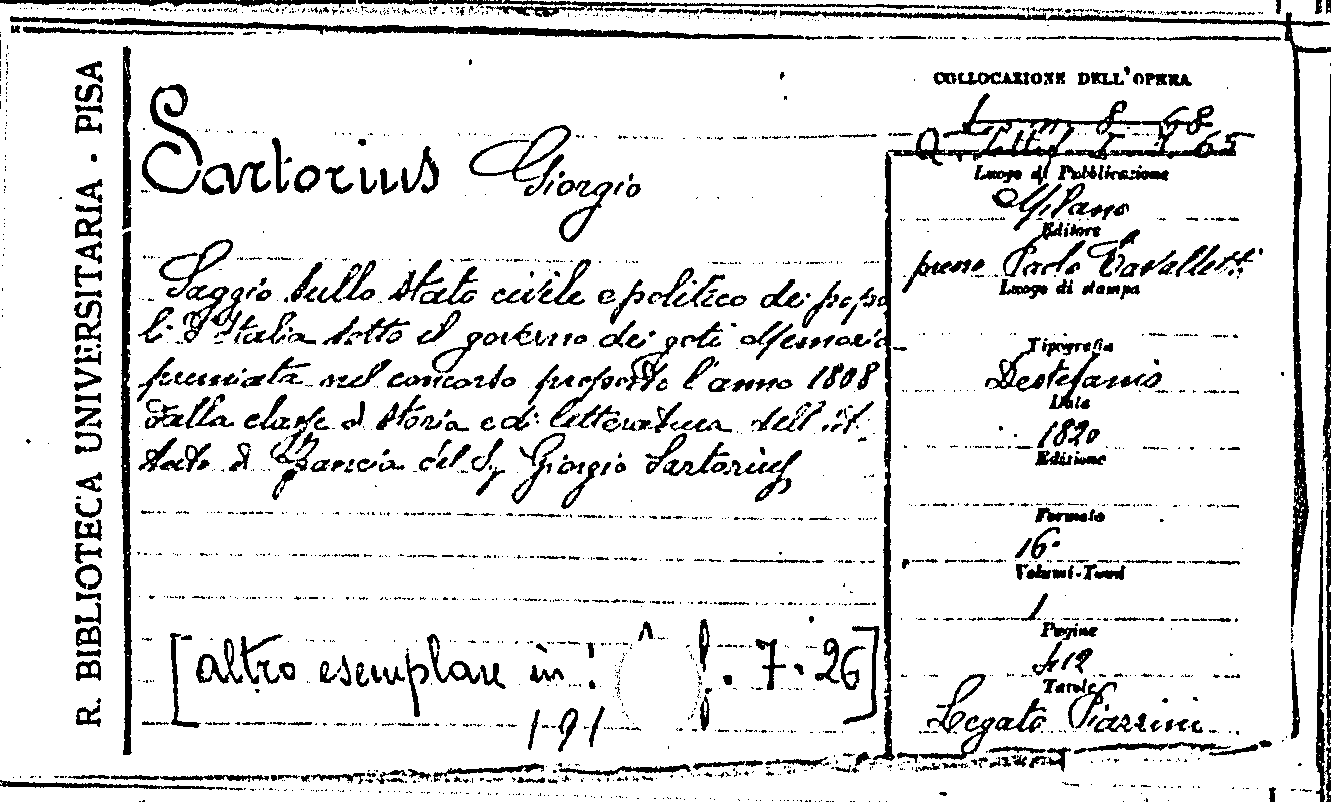 R. BIBLIOTECA UNIVERSITARIA - PISA
Sartorius Giorgio
Saggio sullo stato civile e politico dei popo
li d'Italia sotto il governo dei goti Memoria
premiata nel concorso proposto l'anno 1808
dalla classe di storia e di letteratura dell'ist.
tuto di Francia del S. Giorgio Sartorius
[altro esemplare in: f. 7. 26]
191
COLLOCAZIONE DELL'OPERA
8 68
Q. 65
Luogo di Pubblicazione
Milano
Editore
presso Paolo Cavalletti
Luogo di stampa
Tipografia
Destefanis
Data
1820
Edizione
Formato
16°
Volumi-Tomi
1
Pagine
412
Tavole
Legato Piazzini